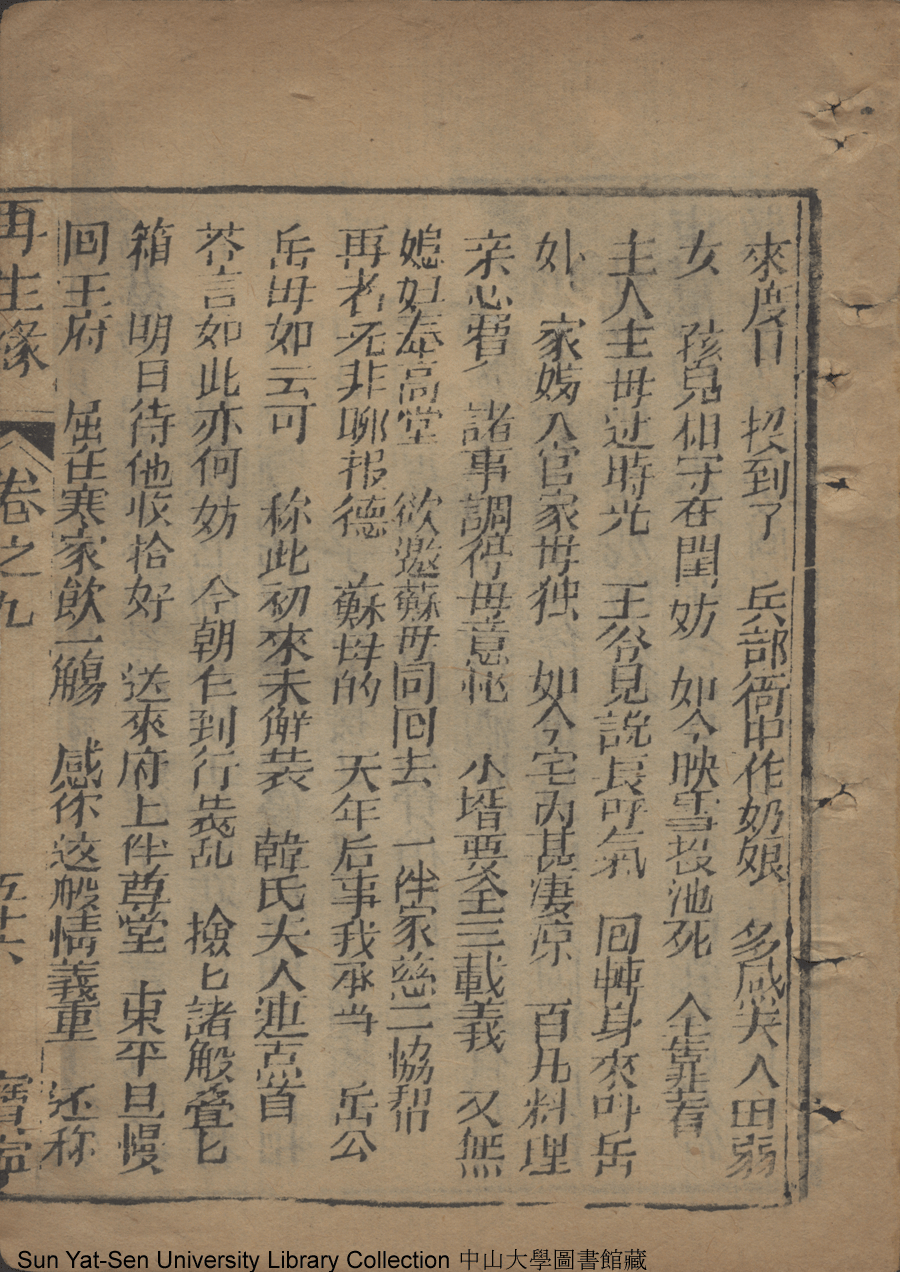 來度日　投到了　兵部衙中作奶娘　多感夫人田弱
女　孩兒相守在閨妨　如今映雪投池死　全靠着
主人主母过時光　王爷見說長呼氣　回轉身來呌岳
外　家嫂入官家毋独　如今宅内甚凄凉　百凢料理
亲心費　諸事調停毋意恾　小壻要全三載義　又無
媳妇奉高堂　欲邀蘇毋同回去　一伴家慈二協帮
再者无非聊报德　蘇母的　天年后事我承当　岳公
岳毋如云可　称此初來未解装　韓氏夫人連点首
荅言如此亦何妨　今朝乍到行装乱　撿匕諸般叠匕
箱　明日待他收拾好　送來府上伴尊堂　東平旦慢
回王府　屈在寒家飲一觴　感你这般情義重　还称
再生缘　卷之九　五十六　寳寧
Sun Yat-Sen University Library Collection 中山大學圖書館藏